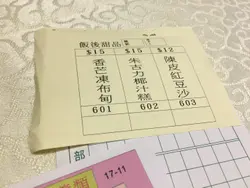 飯後甜品
$15 $15 $12
香芒凍布甸
朱古力椰汁糕
陳皮紅豆沙
601 602 603
部
17-11